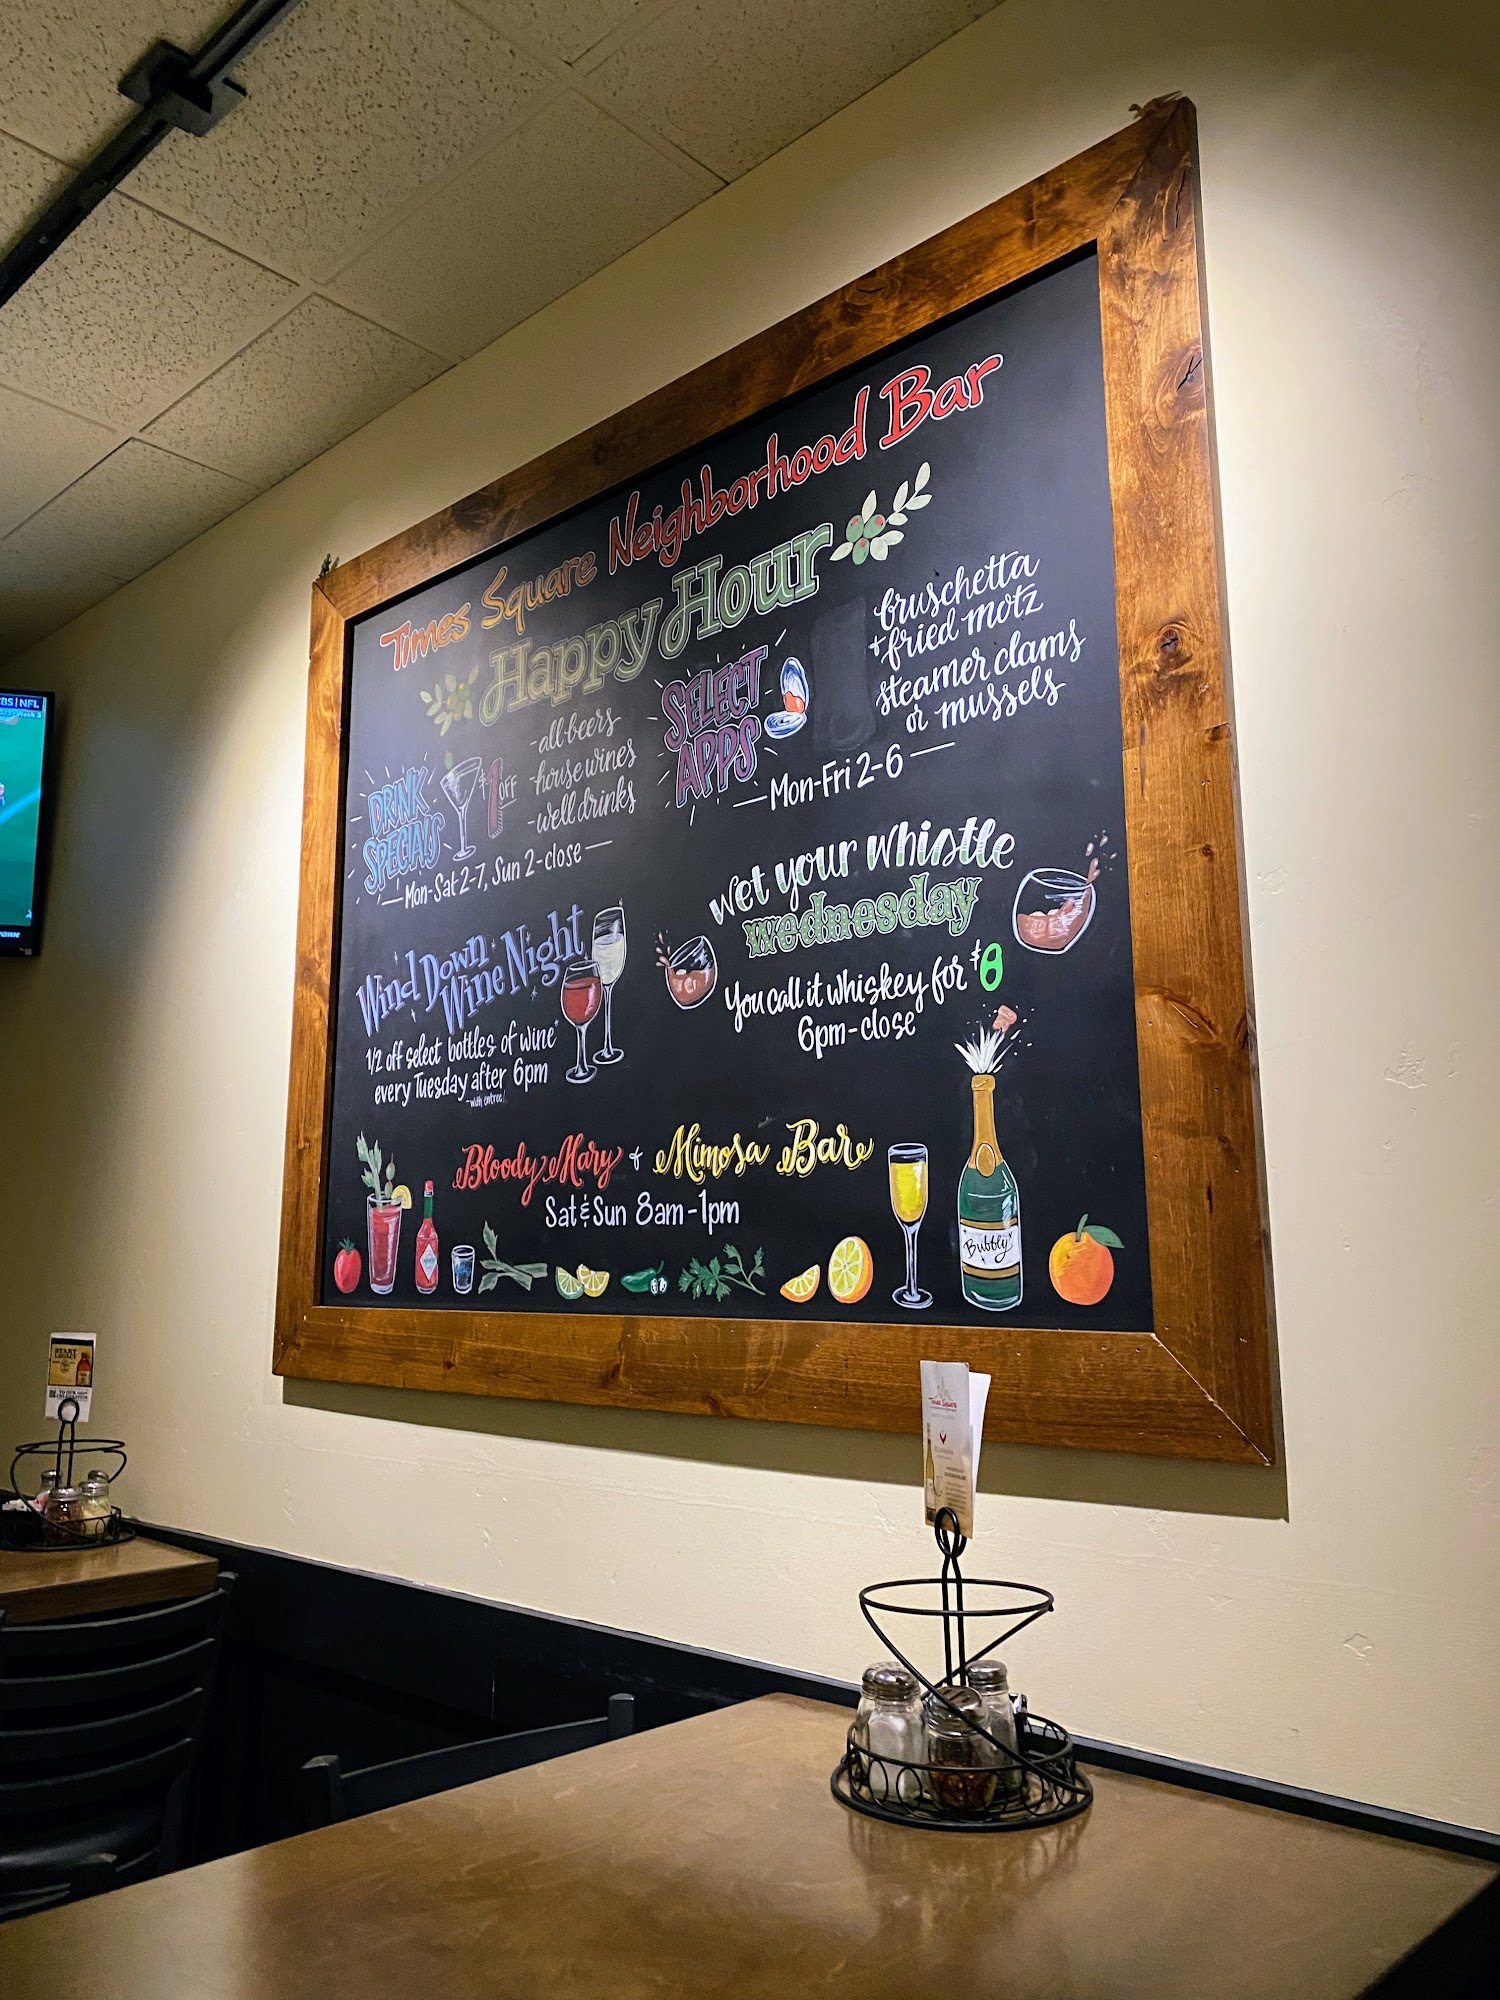 Times Square Neighborhood Bar
Happy Hour
DRINK
SPECIALS
$1 OFF
-all beers
-house wines
-well drinks
Mon-Sat 2-7, Sun 2-close
SELECT
APPS
bruschetta
+ fried motz
steamer clams
or mussels
Mon-Fri 2-6
Wind Down
Wine Night
1/2 off select bottles of wine*
every Tuesday after 6pm
-with entree!
wet your whistle
wednesday
You call it whiskey for $8
6pm-close
Bloody Mary + Mimosa Bar
Sat & Sun 8am-1pm
Bubbly
CBS | NFL
Week 3
START
Times Square